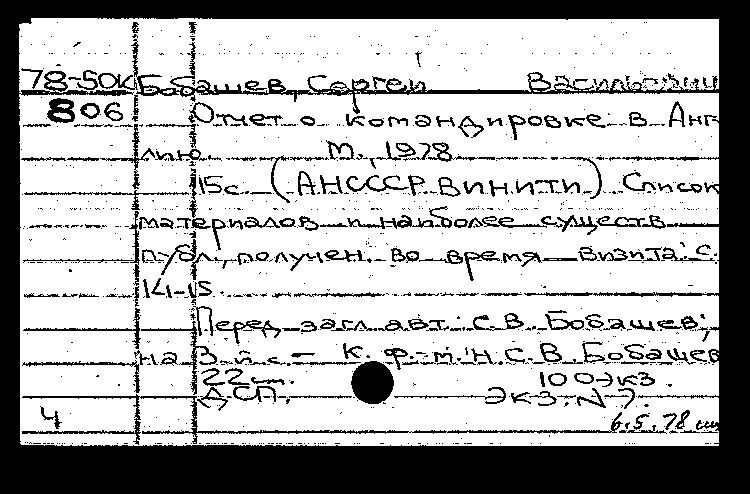 78-50К Бобашев, Сергей Васильевич
806 Отчет о командировке в Анг
лию. М., 1978
15с. (АНСССР. ВИНИТИ) Список
материалов и наиболее существ
публ., получен. во время визита: с.
14-15.
Перед загл. авт.: С.В. Бобашев;
на 3-й с. - К. ф.-м. н. С.В. Бобашев
22 см. 100экз.
ДСП. Экз. N 7.
4 6.5.78